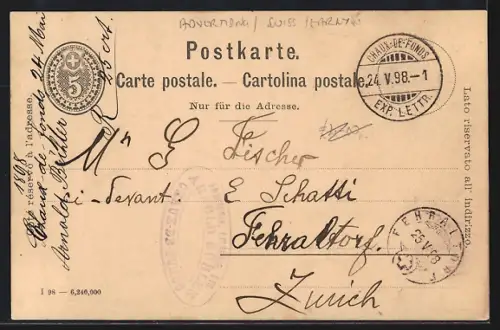 Postkarte.
Carte postale. — Cartolina postale.
Nur für die Adresse.
5
CHAUX-DE-FONDS
24.V.98.–1
EXP. LETTR.
Côté réservé à l'adresse.
1898
Chaux-de-fonds 24 Mai
Arnold Bühler
25 ct.
Lato riservato all' indirizzo.
Mr E Fischer
ci-devant E Schatti
Fehraltorf.
Zurich
FEHRALTORF
25.V.98
I 98 — 6,240,000